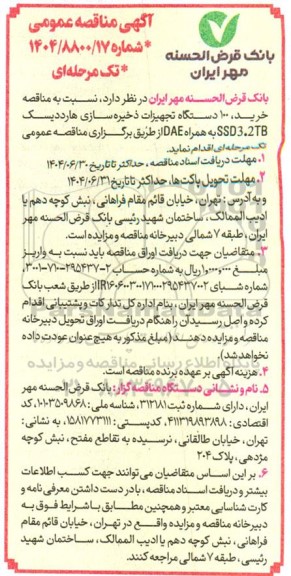 بانک قرض الحسنه
مهر ایران
آگهی مناقصه عمومی
*شماره ۱۴۰۴/۸۸۰۰/۱۷
*تک مرحله‌ای
بانک قرض الحسنه مهر ایران در نظر دارد، نسبت به مناقصه
خرید، ۱۰۰ دستگاه تجهیزات ذخیره سازی هارددیسک
SSD 3.2TB به همراه DAE از طریق برگزاری مناقصه عمومی
تک مرحله‌ای اقدام نماید.
۱. مهلت دریافت اسناد مناقصه، حداکثر تا تاریخ ۱۴۰۴/۰۶/۳۰
۲. مهلت تحویل پاکت‌ها، حداکثر تا تاریخ ۱۴۰۴/۰۶/۳۱
و به آدرس: تهران، خیابان قائم مقام فراهانی، نبش کوچه دهم یا
ادیب الممالک، ساختمان شهید رئیسی بانک قرض الحسنه مهر
ایران، طبقه ۷ شمالی دبیرخانه مناقصه و مزایده است.
۳. متقاضیان جهت دریافت اوراق مناقصه باید نسبت به واریز
مبلغ ۱,۰۰۰,۰۰۰ ریال به شماره حساب
شماره شبای از طریق شعب بانک
قرض الحسنه مهر ایران، بنام اداره کل تدارکات و پشتیبانی اقدام
کرده و اصل رسید آن را هنگام دریافت اوراق تحویل دبیرخانه
مناقصه و مزایده دهند (مبلغ مذکور به هیچ عنوان عودت داده
نخواهد شد).
۴. هزینه آگهی بر عهده برنده مناقصه است.
۵. نام و نشانی دستگاه مناقصه گزار: بانک قرض الحسنه مهر
ایران، دارای شماره ثبت ۳۱۲۱۸۱، شناسه ملی: ۱۰۱۰۳۵۰۹۸۶۸، کد
اقتصادی: ۴۱۱۳۹۸۹۳۸۹۸، کدپستی: ۱۵۸۱۷۷۳۱۱۱، به نشانی:
تهران، خیابان طالقانی، نرسیده به تقاطع مفتح، نبش کوچه
مژدهی، پلاک ۲۰۴
۶. بر این اساس متقاضیان می‌توانند جهت کسب اطلاعات
بیشتر و دریافت اسناد مناقصه، با در دست داشتن معرفی نامه و
کارت شناسایی معتبر و همچنین مطابق با شرایط فوق به
دبیرخانه مناقصه و مزایده واقع در تهران، خیابان قائم مقام
فراهانی، نبش کوچه دهم یا ادیب الممالک، ساختمان شهید
رئیسی، طبقه ۷ شمالی مراجعه کنند.